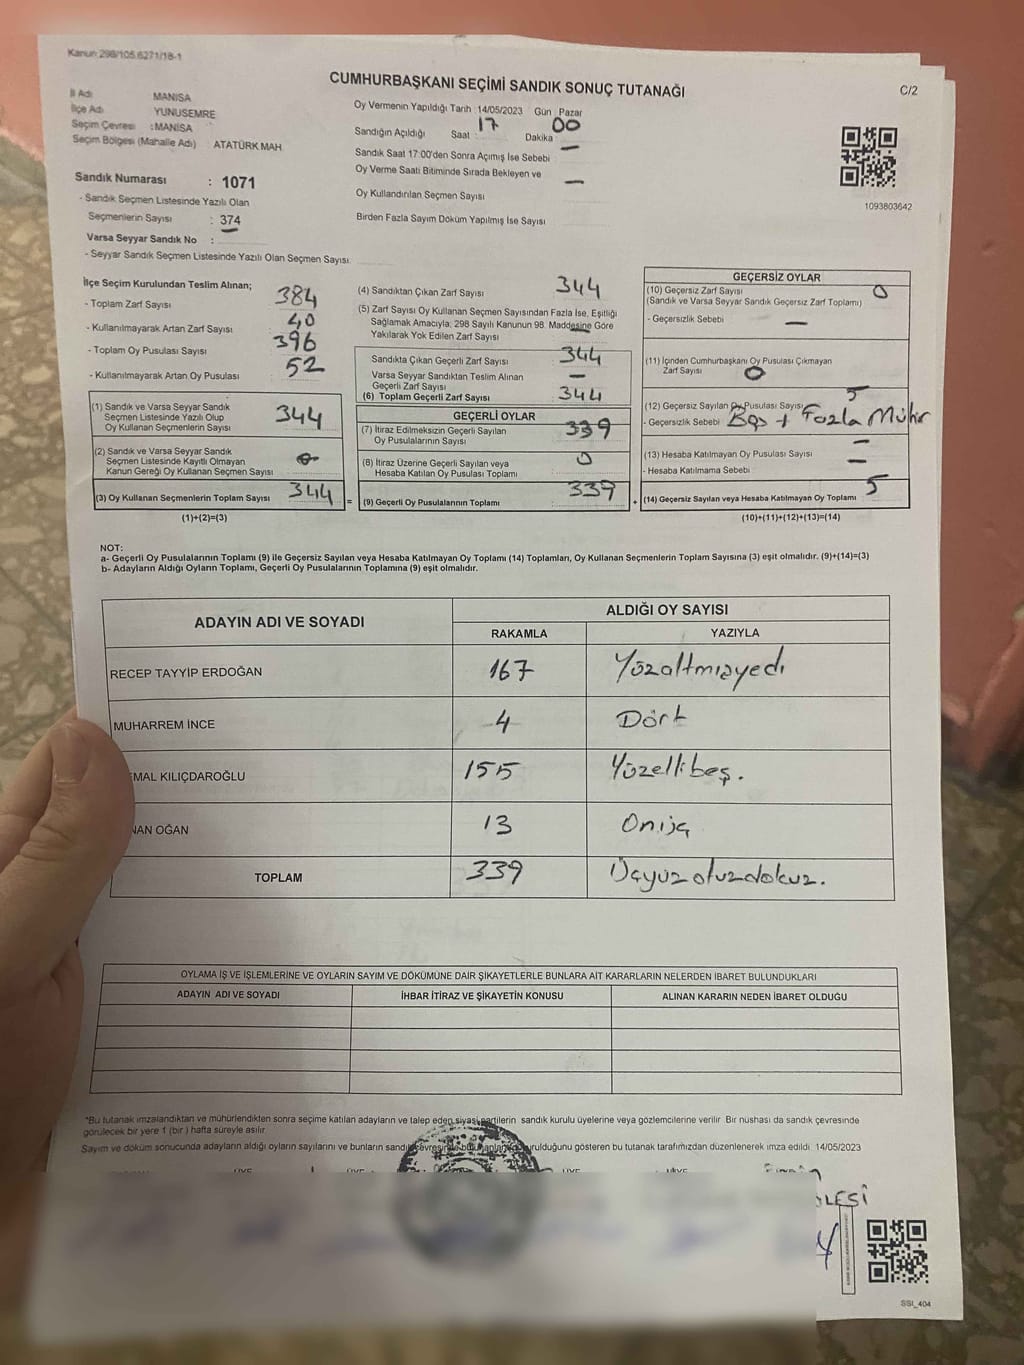 Kanun 298/105.6271/18-1
CUMHURBAŞKANI SEÇİMİ SANDIK SONUÇ TUTANAĞI
C/2
İl Adı MANİSA
İlçe Adı YUNUSEMRE
Seçim Çevresi : MANİSA
Seçim Bölgesi (Mahalle Adı) ATATÜRK MAH
Sandık Numarası : 1071
- Sandık Seçmen Listesinde Yazılı Olan
Seçmenlerin Sayısı : 374
Varsa Seyyar Sandık No :
- Seyyar Sandık Seçmen Listesinde Yazılı Olan Seçmen Sayısı
Oy Vermenin Yapıldığı Tarih : 14/05/2023 Gün : Pazar
Sandığın Açıldığı Saat 17 Dakika 00
Sandık Saat 17:00'den Sonra Açımış İse Sebebi —
Oy Verme Saati Bitiminde Sırada Bekleyen ve
Oy Kullandırılan Seçmen Sayısı —
Birden Fazla Sayım Döküm Yapılmış İse Sayısı
1093803642
İlçe Seçim Kurulundan Teslim Alınan;
- Toplam Zarf Sayısı 384
- Kullanılmayarak Artan Zarf Sayısı 40
- Toplam Oy Pusulası Sayısı 396
- Kullanılmayarak Artan Oy Pusulası 52
(1) Sandık ve Varsa Seyyar Sandık
Seçmen Listesinde Yazılı Olup
Oy Kullanan Seçmenlerin Sayısı 344
(2) Sandık ve Varsa Seyyar Sandık
Seçmen Listesinde Kayıtlı Olmayan
Kanun Gereği Oy Kullanan Seçmen Sayısı 0
(3) Oy Kullanan Seçmenlerin Toplam Sayısı 344 =
(1)+(2)=(3)
(4) Sandıktan Çıkan Zarf Sayısı 344
(5) Zarf Sayısı Oy Kullanan Seçmen Sayısından Fazla İse, Eşitliği
Sağlamak Amacıyla, 298 Sayılı Kanunun 98. Maddesine Göre
Yakılarak Yok Edilen Zarf Sayısı —
Sandıkta Çıkan Geçerli Zarf Sayısı 344
Varsa Seyyar Sandıktan Teslim Alınan
Geçerli Zarf Sayısı —
(6) Toplam Geçerli Zarf Sayısı 344
GEÇERLİ OYLAR
(7) İtiraz Edilmeksizin Geçerli Sayılan
Oy Pusulalarının Sayısı 339
(8) İtiraz Üzerine Geçerli Sayılan veya
Hesaba Katılan Oy Pusulası Toplamı 0
(9) Geçerli Oy Pusulalarının Toplamı 339 +
GEÇERSİZ OYLAR
(10) Geçersiz Zarf Sayısı 0
(Sandık ve Varsa Seyyar Sandık Geçersiz Zarf Toplamı)
- Geçersizlik Sebebi —
(11) İçinden Cumhurbaşkanı Oy Pusulası Çıkmayan
Zarf Sayısı 0
(12) Geçersiz Sayılan Oy Pusulası Sayısı 5
- Geçersizlik Sebebi Boş + Fazla Mühür
(13) Hesaba Katılmayan Oy Pusulası Sayısı —
- Hesaba Katılmama Sebebi —
(14) Geçersiz Sayılan veya Hesaba Katılmayan Oy Toplamı 5
(10)+(11)+(12)+(13)=(14)
NOT:
a- Geçerli Oy Pusulalarının Toplamı (9) ile Geçersiz Sayılan veya Hesaba Katılmayan Oy Toplamı (14) Toplamları, Oy Kullanan Seçmenlerin Toplam Sayısına (3) eşit olmalıdır. (9)+(14)=(3)
b- Adayların Aldığı Oyların Toplamı, Geçerli Oy Pusulalarının Toplamına (9) eşit olmalıdır.
ADAYIN ADI VE SOYADI ALDIĞI OY SAYISI
RAKAMLA YAZIYLA
RECEP TAYYİP ERDOĞAN 167 Yüzaltmışyedi
MUHARREM İNCE 4 Dört
EMAL KILIÇDAROĞLU 155 Yüzellibeş.
NAN OĞAN 13 Onüç
TOPLAM 339 Üçyüzotuzdokuz.
OYLAMA İŞ VE İŞLEMLERİNE VE OYLARIN SAYIM VE DÖKÜMÜNE DAİR ŞİKAYETLERLE BUNLARA AİT KARARLARIN NELERDEN İBARET BULUNDUKLARI
ADAYIN ADI VE SOYADI İHBAR İTİRAZ VE ŞİKAYETİN KONUSU ALINAN KARARIN NEDEN İBARET OLDUĞU
*Bu tutanak imzalandıktan ve mühürlendikten sonra seçime katılan adayların ve talep eden siyasi partilerin sandık kurulu üyelerine veya gözlemcilerine verilir. Bir nüshası da sandık çevresinde
görülecek bir yere 1 (bir) hafta süreyle asılır.
Sayım ve döküm sonucunda adayların aldığı oyların sayılarını ve bunların sandık çevresine
bu tutanak tarafımızdan düzenlenerek imza edildi. 14/05/2023
ÜYE ÜYE ÜYE ÜYE
SSI_404